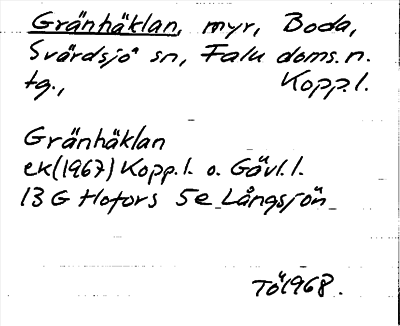 Gränhäklan, myr, Boda,
Svärdsjö sn, Falu doms.n.
tg., Kopp.l.
Gränhäklan
ek(1967) Kopp.l. o. Gävl.l.
13 G Hofors 5e Långsjön
Tö 1968.